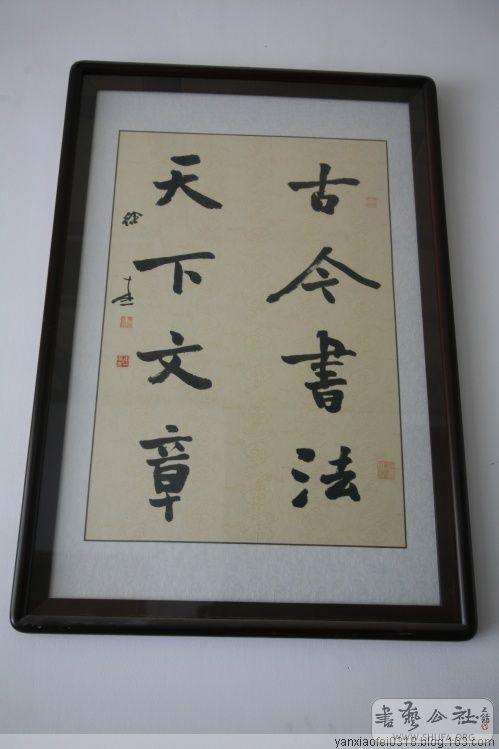 古今書法
天下文章
徐
書藝公社
WWW.SHUFA.ORG
yanxiaofei0318.blog.163.com